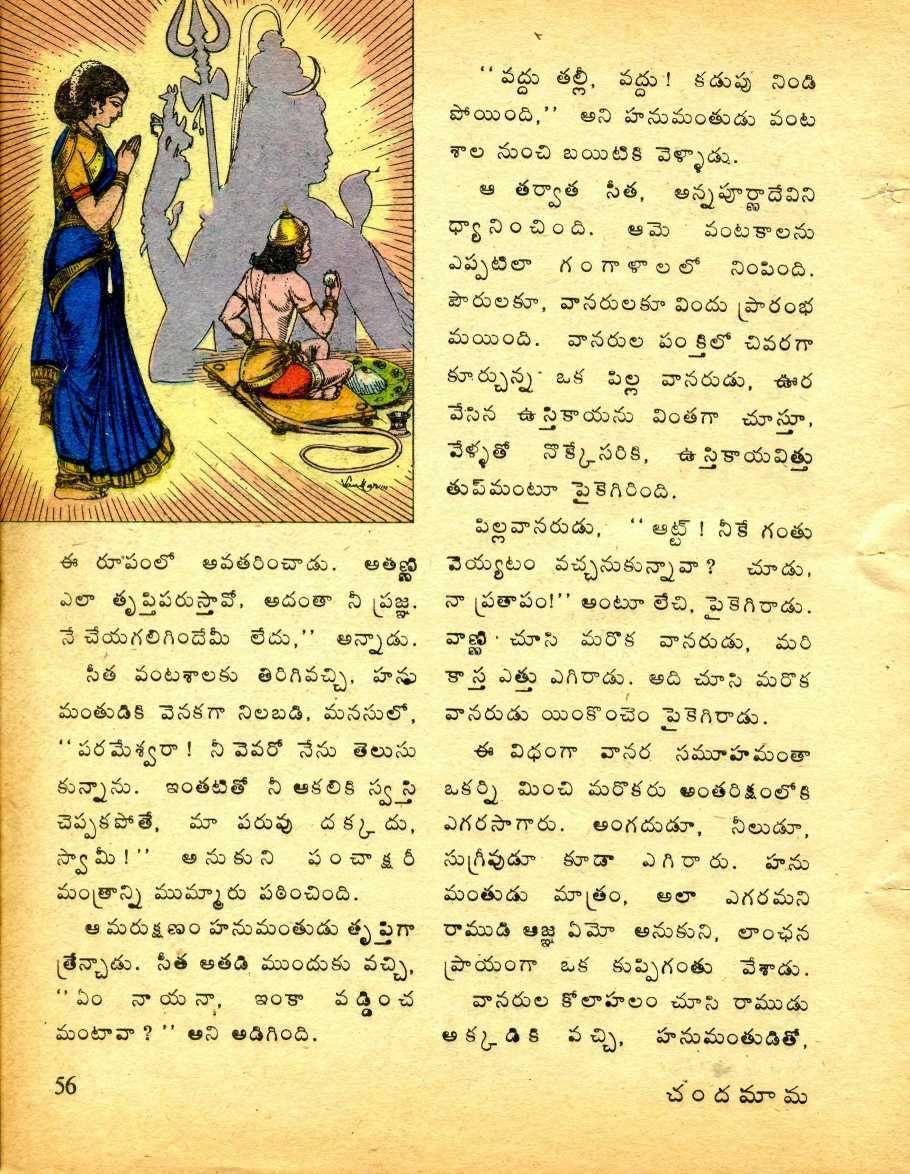 ఈ రూపంలో అవతరించాడు. అతణ్ణి
ఎలా తృప్తిపరుస్తావో, అదంతా నీ ప్రజ్ఞ.
నే చేయగలిగిందేమీ లేదు,'' అన్నాడు.
సీత వంటశాలకు తిరిగివచ్చి, హను
మంతుడికి వెనకగా నిలబడి, మనసులో,
''పరమేశ్వరా! నీ వెవరో నేను తెలుసు
కున్నాను. ఇంతటితో నీ ఆకలికి స్వస్తి
చెప్పకపోతే, మా పరువు దక్కదు,
స్వామీ!'' అనుకుని పంచాక్షరీ
మంత్రాన్ని ముమ్మారు పఠించింది.
ఆ మరుక్షణం హనుమంతుడు తృప్తిగా
త్రేన్చాడు. సీత అతడి ముందుకు వచ్చి,
''ఏం నాయనా, ఇంకా వడ్డించ
మంటావా?'' అని అడిగింది.
''వద్దు తల్లీ, వద్దు! కడుపు నిండి
పోయింది,'' అని హనుమంతుడు వంట
శాల నుంచి బయిటికి వెళ్ళాడు.
ఆ తర్వాత సీత, అన్నపూర్ణాదేవిని
ధ్యానించింది. ఆమె వంటకాలను
ఎప్పటిలా గంగాళాలలో నింపింది.
పౌరులకూ, వానరులకూ విందు ప్రారంభ
మయింది. వానరుల పంక్తిలో చివరగా
కూర్చున్న ఒక పిల్ల వానరుడు, ఊర
వేసిన ఉస్తికాయను వింతగా చూస్తూ,
వేళ్ళతో నొక్కేసరికి, ఉస్తికాయవిత్తు
తుప్‌మంటూ పైకెగిరింది.
పిల్లవానరుడు, ''ఆట్ట్! నీకే గంతు
వెయ్యటం వచ్చనుకున్నావా? చూడు,
నా ప్రతాపం!'' అంటూ లేచి, పైకెగిరాడు.
వాణ్ణి చూసి మరొక వానరుడు, మరి
కాస్త ఎత్తు ఎగిరాడు. అది చూసి మరొక
వానరుడు యింకొంచెం పైకెగిరాడు.
ఈ విధంగా వానర సమూహమంతా
ఒకర్ని మించి మరొకరు అంతరిక్షంలోకి
ఎగరసాగారు. అంగదుడూ, నీలుడూ,
సుగ్రీవుడూ కూడా ఎగిరారు. హను
మంతుడు మాత్రం, అలా ఎగరమని
రాముడి ఆజ్ఞ ఏమో అనుకుని, లాంఛన
ప్రాయంగా ఒక కుప్పిగంతు వేశాడు.
వానరుల కోలాహలం చూసి రాముడు
అక్కడికి వచ్చి, హనుమంతుడితో,
56
చందమామ